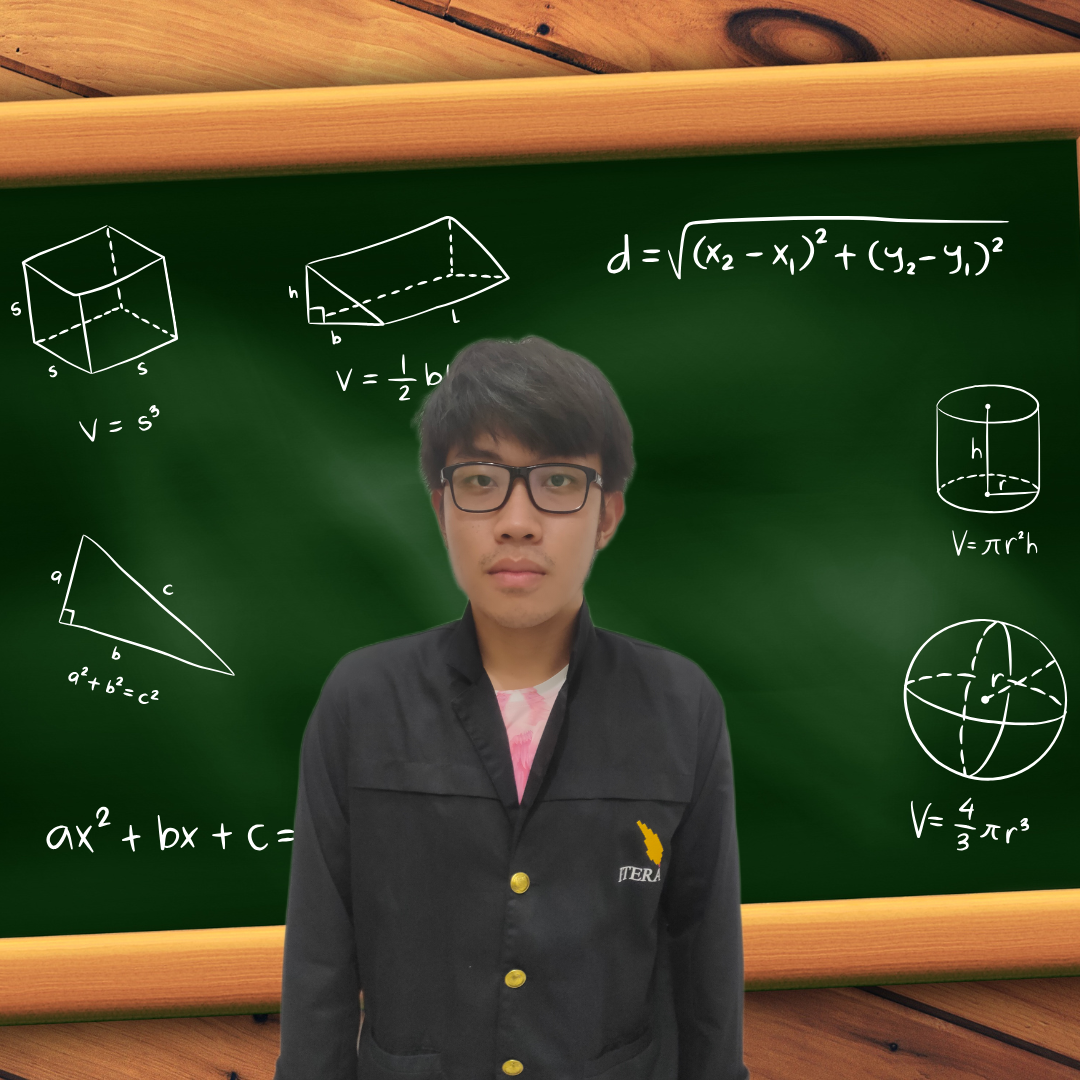 s
s
s
V = s³
h
b
L
V = 1/2 b
d = √(x₂ - x₁)² + (y₂ - y₁)²
h
r
V = πr²h
a
c
b
a² + b² = c²
r
V = 4/3 πr³
ax² + bx + c =
ITERA